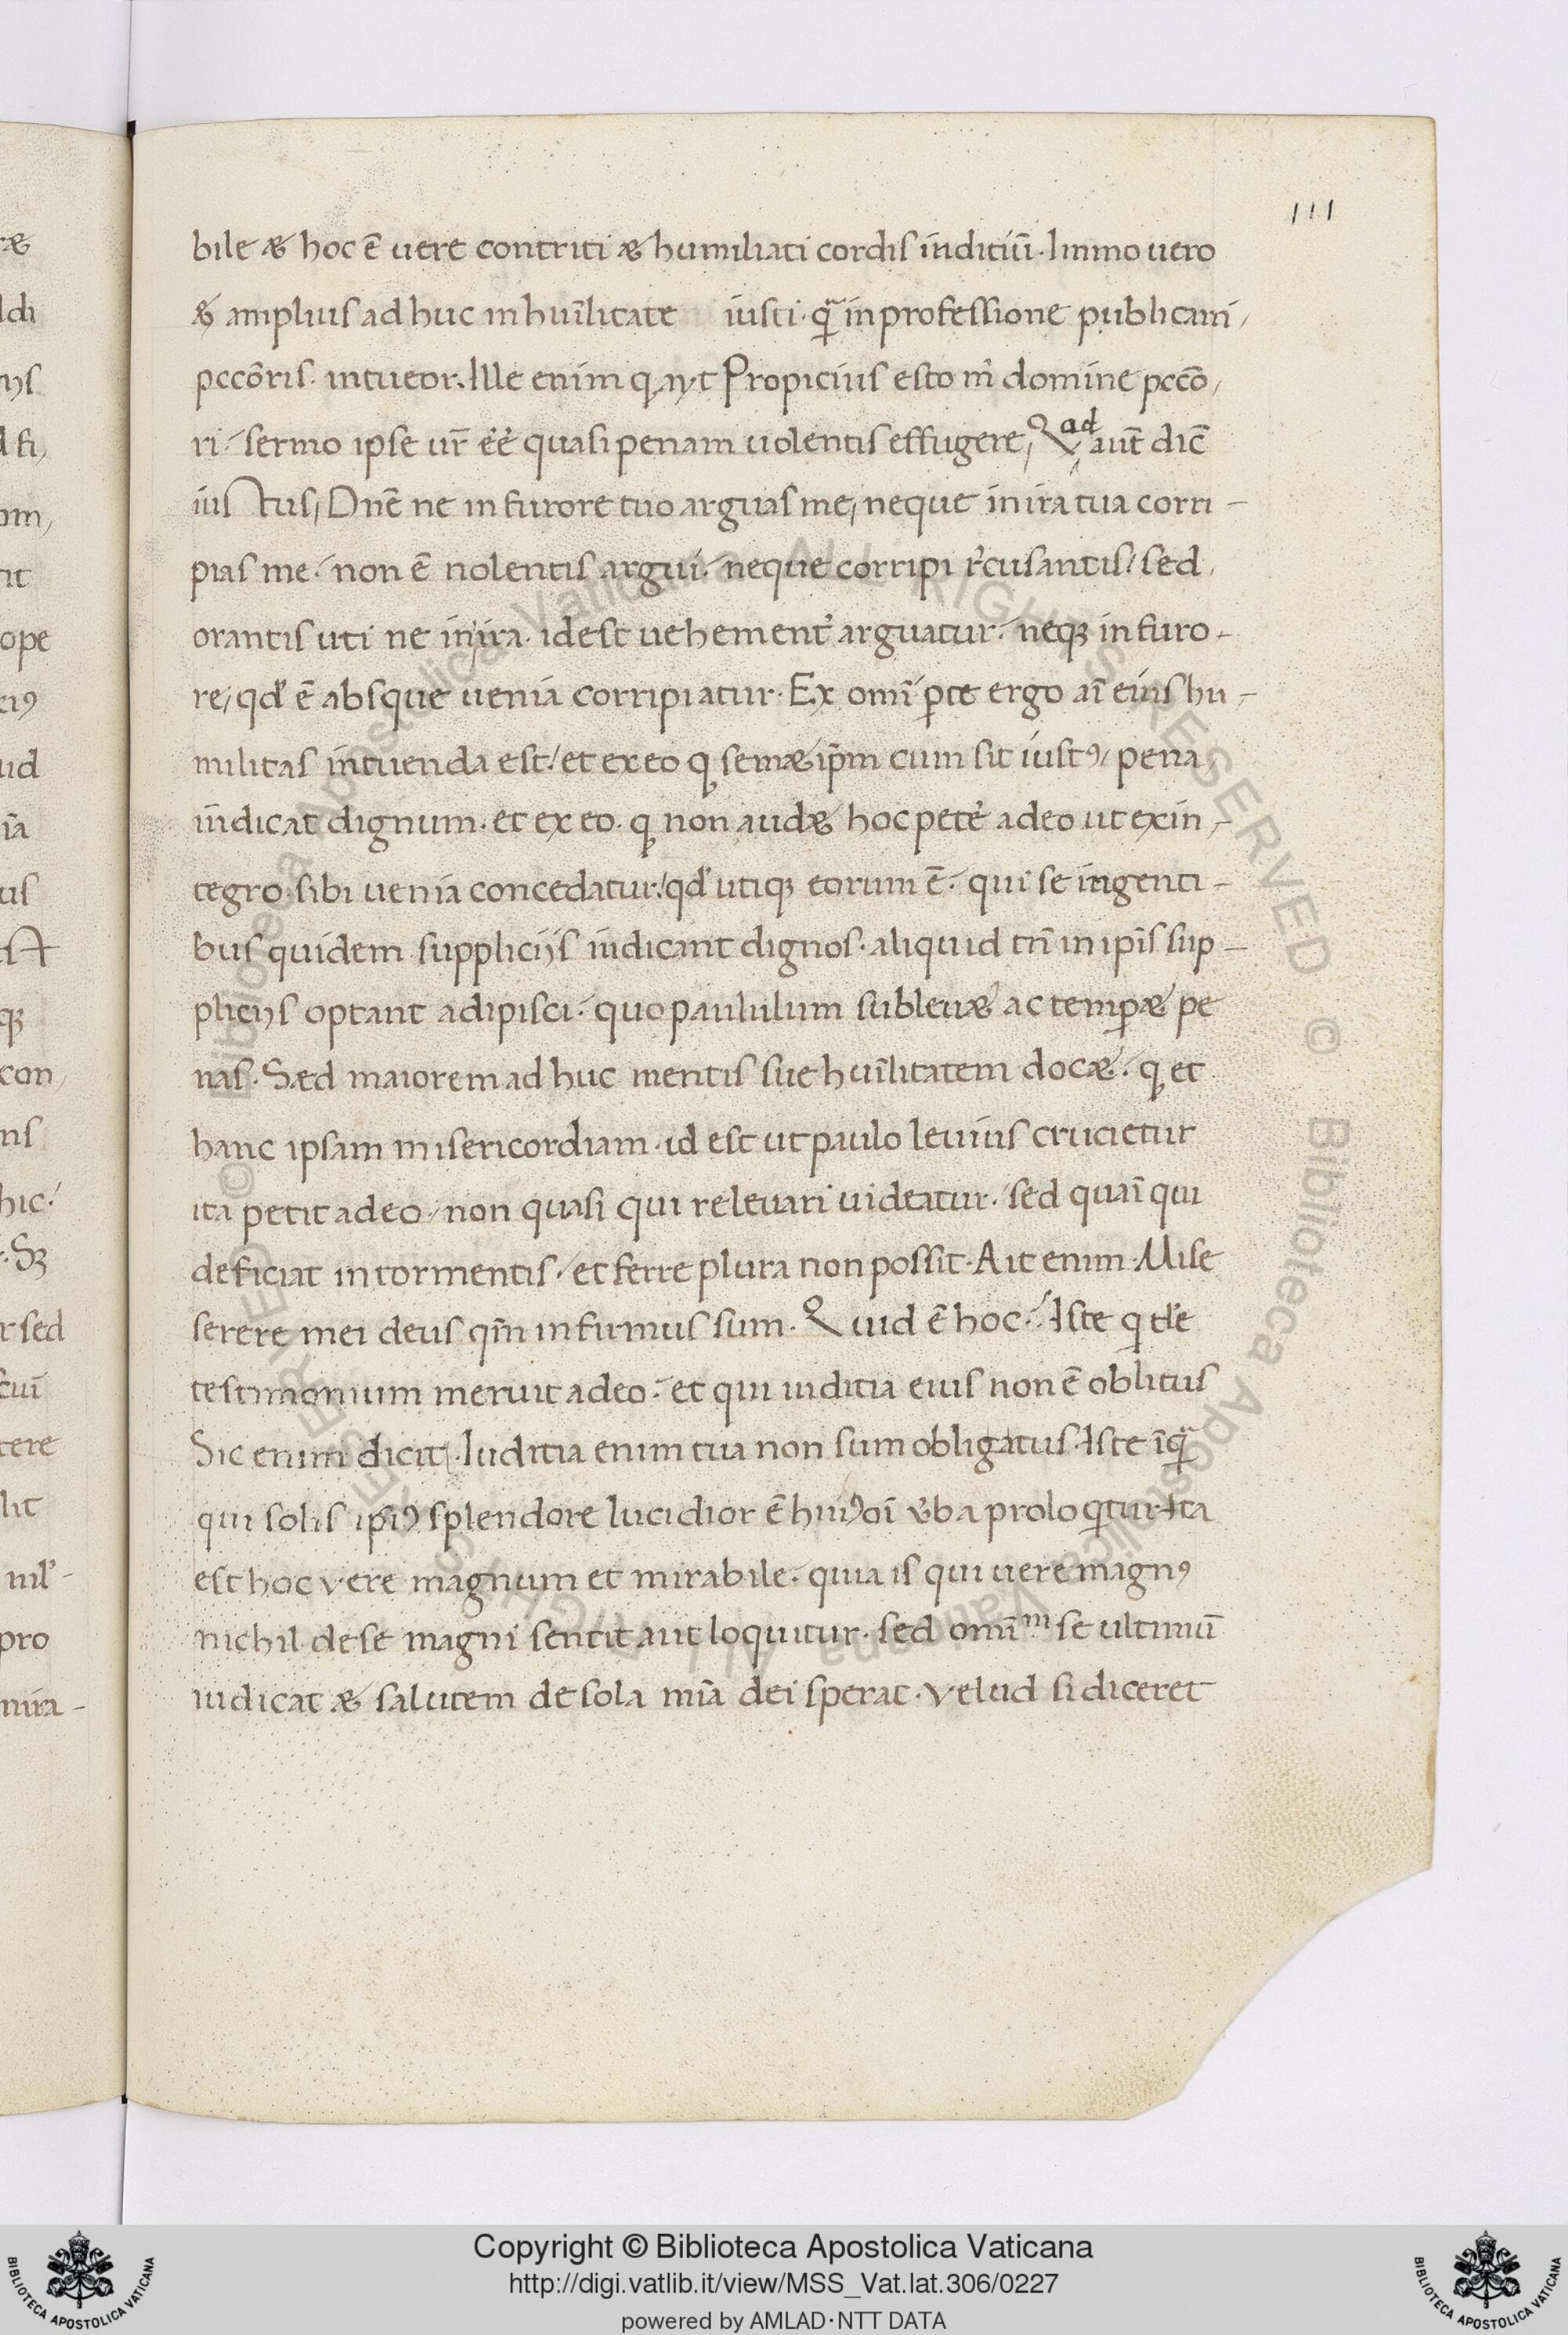 111
bile æ hoc ē uere contriti æ humiliati cordis inditiū. Immo uero
& amplius ad huc in huīlitate iusti. quā in professione publicani,
pccōris. intueor. Ille enim q ayt Propicius esto m domine pccō,
ri sermo ipse ur̄ eē quasi penam uolentis effugere, Q ad aut̄ dic̄
iustus, Dn̄e ne in furore tuo arguas me, neque in ira tua corri-
pias me. non ē nolentis argui. neque corripi rcusantis. sed,
orantis uti ne in ira. id est uehement arguatur. neqꝫ in furo-
re, qd ē absque uenia corripiatur. Ex omī pte ergo aī eius hu-
militas intuenda est. et ex eo q semæ ip̄m cum sit iustꝰ, pena,
iudicat dignum. et ex eo. q non audæ hoc pete adeo ut ex in-
tegro sibi uenia concedatur. qd utiqꝫ eorum ē. qui se ingenti-
bus quidem supplicijs iudicant dignos. aliquid tn̄ in ipīs sup-
plicijs optant adipisci. quo paululum subleuæ ac tempæ pe
nas. Sæd maiorem ad huc mentis sue huīlitatem docæ. q et
hanc ipsam misericordiam. id est ut paulo leuius crucietur
ita petit adeo, non quasi qui releuari uideatur. sed quaī qui
deficiat in tormentis. et ferre plura non possit. Ait enim. Mise
serere mei deus qm̄ infirmus sum. Quid ē hoc. Iste q de
testimonium meruit adeo. et qui iuditia eius non ē oblitus
Sic enim dicit. Iuditia enim tua non sum obligatus. Iste īquā
qui solis ipiꝰ splendore lucidior ē huiꝰoī uba prolo qtur. Ita
est hoc vere magnum et mirabile. quia is qui uere magnꝰ
nichil de se magni sentit aut loquitur. sed omīm se ultimū
iudicat æ salutem de sola mīa dei sperat. velud si diceret
Copyright © Biblioteca Apostolica Vaticana
http://digi.vatlib.it/view/MSS_Vat.lat.306/0227
powered by AMLAD·NTT DATA